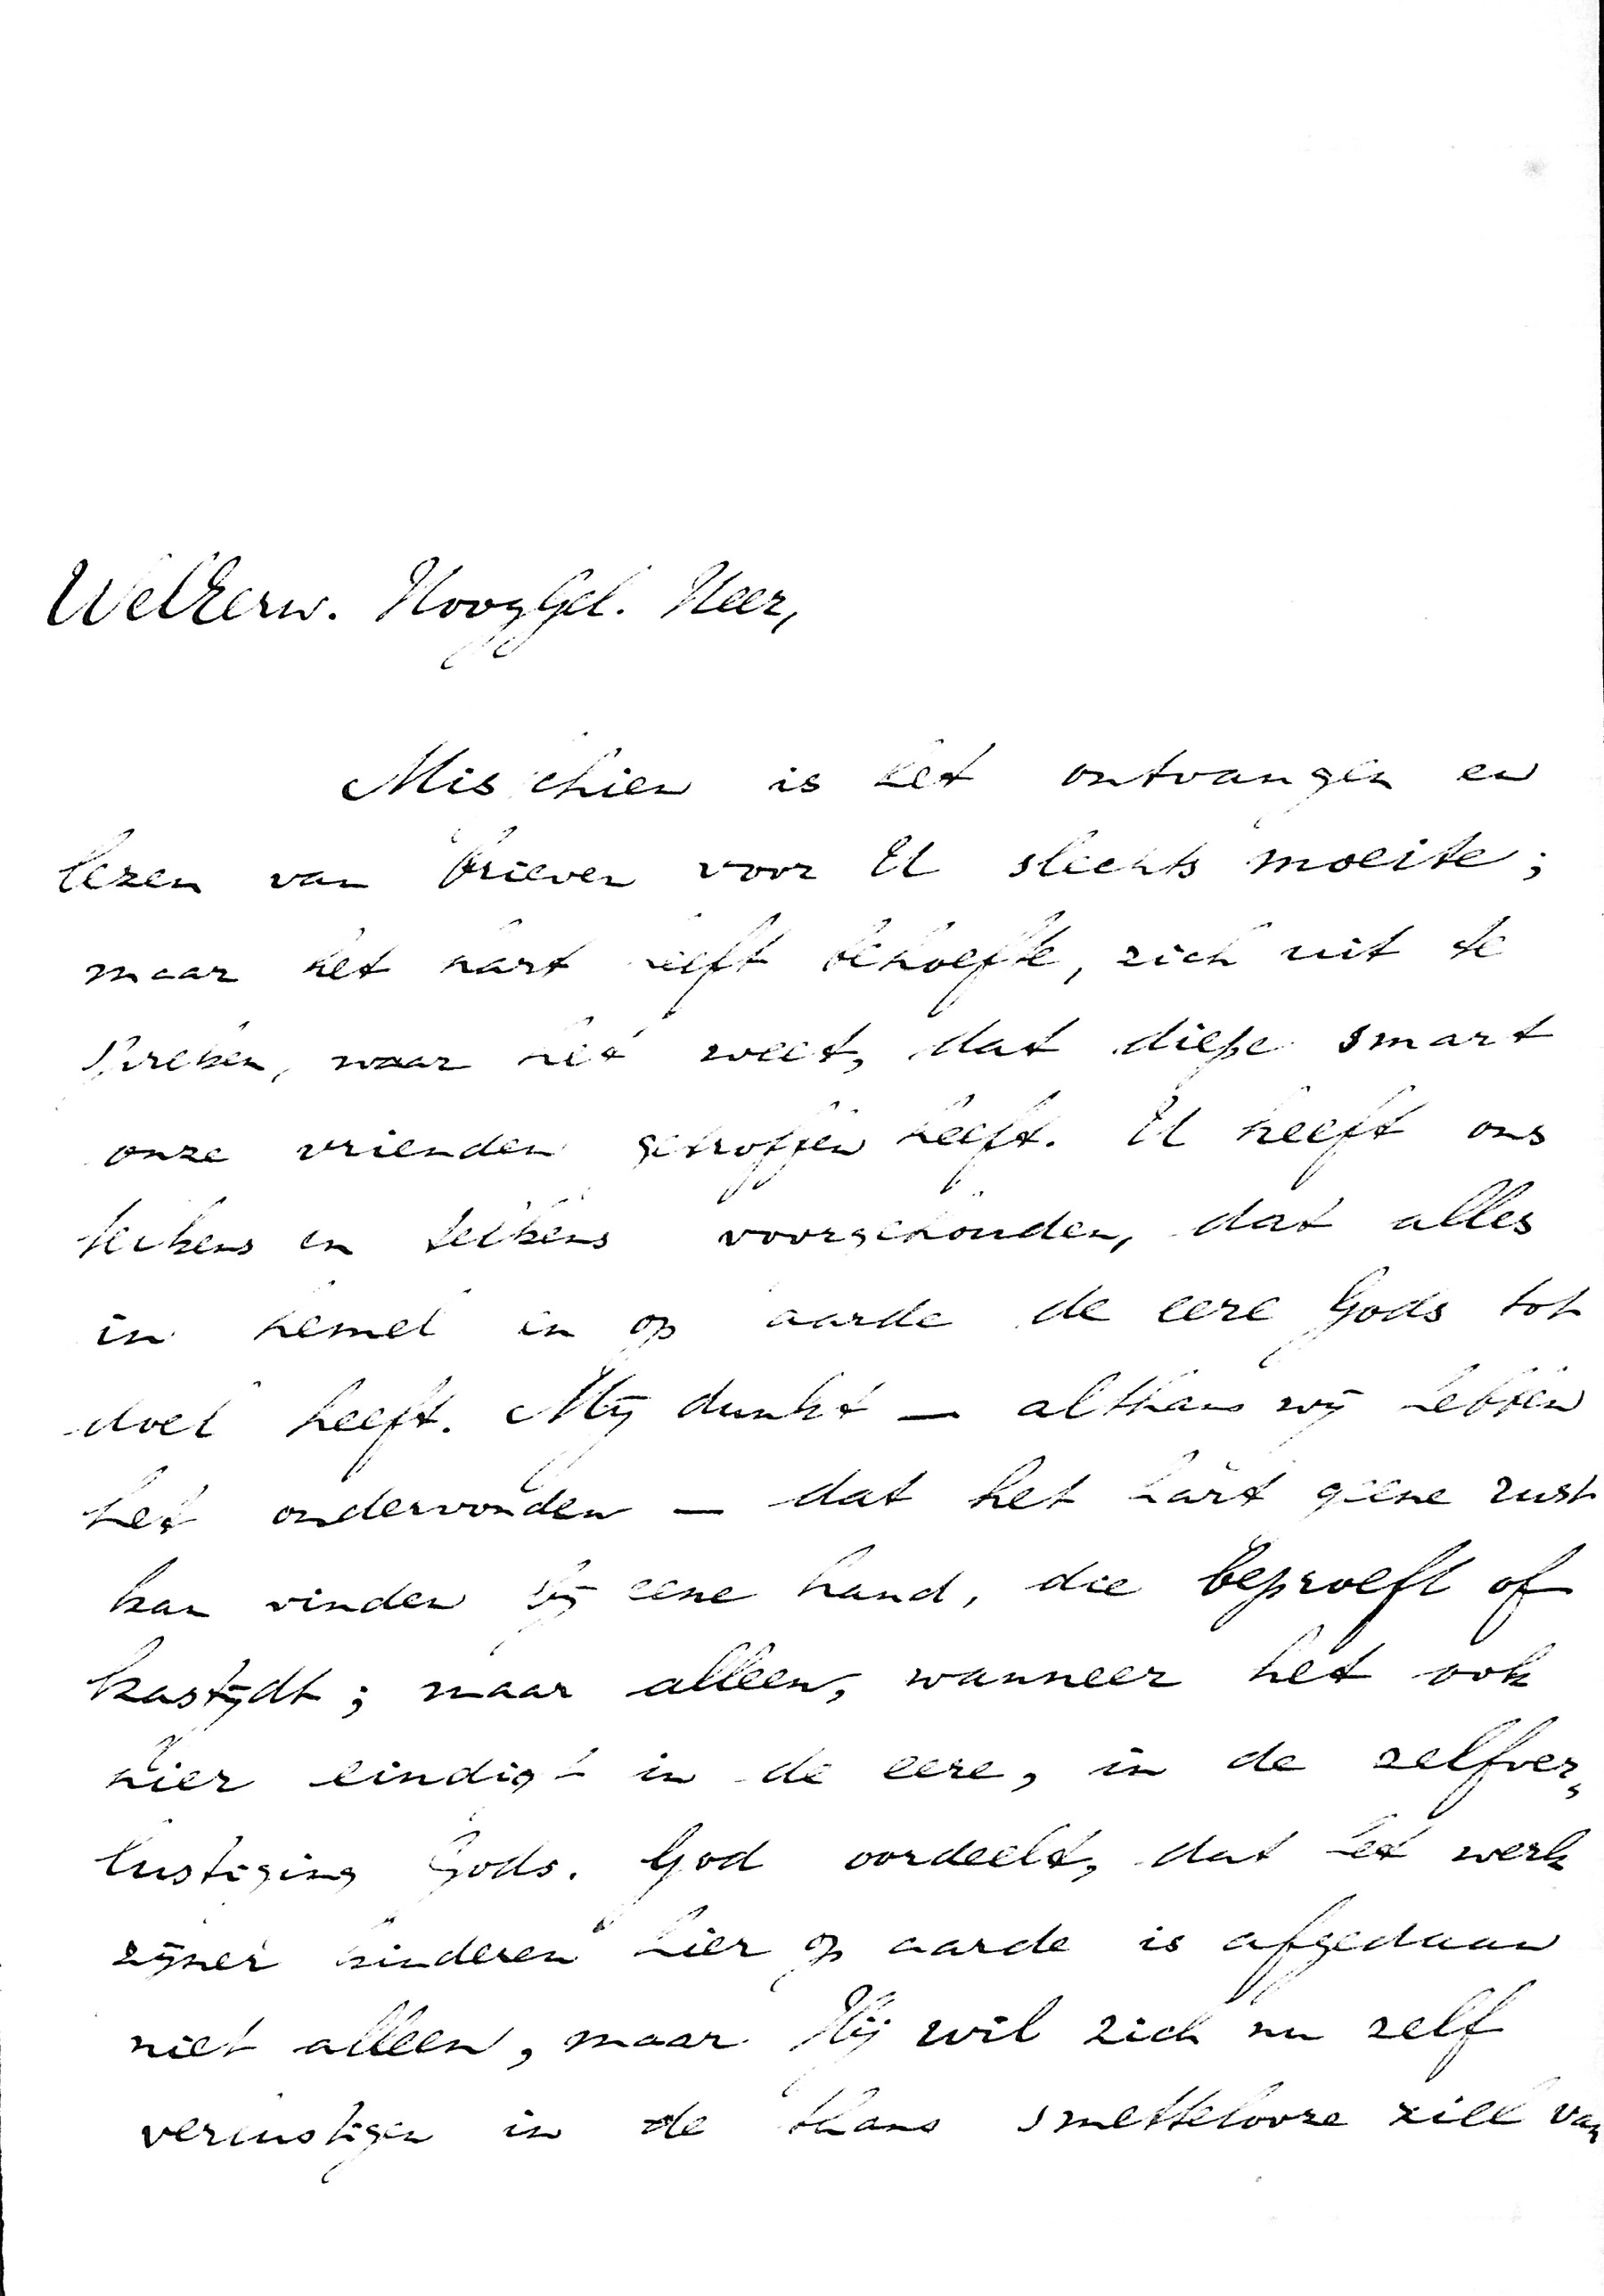 WelEerw. HoogGel. Heer,
Misschien is het ontvangen en
lezen van brieven voor U slechts moeite;
maar het hart heeft behoefte, zich uit te
spreken, waar het weet, dat diepe smart
onze vrienden getroffen heeft. U heeft ons
telkens en telkens voorgehouden, dat alles
in hemel en op aarde de eere Gods tot
doel heeft. Mij dunkt — althans wij hebben
het ondervonden — dat het hart geene rust
kan vinden bij eene hand, die beproeft of
kastijdt; maar alleen, wanneer het ook
hier eindigt in de eere, in de zelfver„
lustiging Gods. God oordeelt, dat het werk
zijner kinderen hier op aarde is afgedaan
niet alleen, maar Hij wil zich nu zelf
verlustigen in de thans smettelooze ziel van